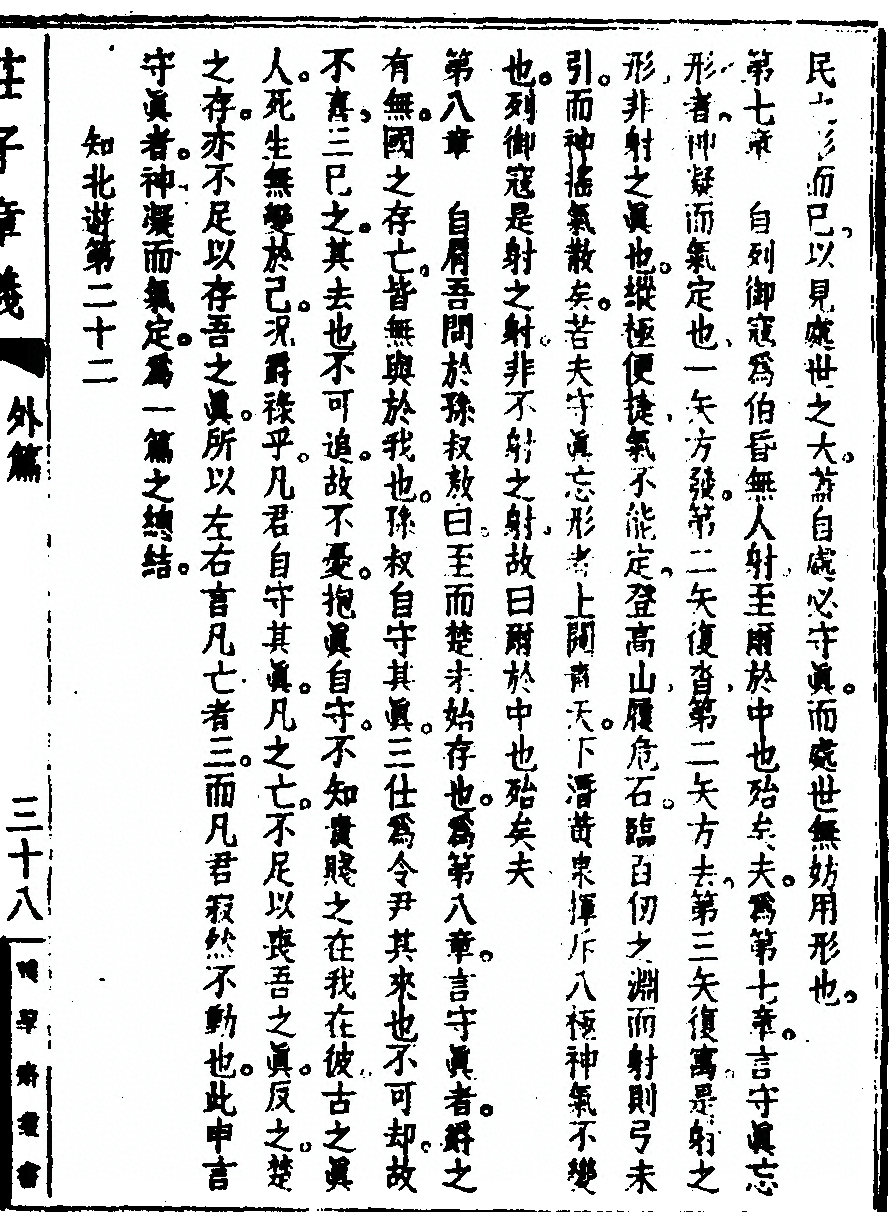 民之形而已以見處世之大葢自處必守眞而處世無妨用形也。
第七章　自列御寇爲伯昏無人射至爾於中也殆矣夫。爲第七章。言守眞忘
形者神凝而氣定也一矢方發。第二矢復沓。第二矢方去。第三矢復寓。是射之
形非射之眞也。縱極便捷氣不能定。登高山履危石。臨百仞之淵而射則弓未
引。而神搖氣散矣。若夫守眞忘形者上闚靑天。下潛黃泉揮斥八極神氣不變
也。列御寇是射之射。非不射之射故曰爾於中也殆矣夫
第八章　自肩吾問於孫叔敖曰。至而楚未始存也。爲第八章。言守眞者。爵之
有無。國之存亡。皆無與於我也。孫叔自守其眞。三仕爲令尹其來也不可却。故
不喜。三已之。其去也不可追。故不憂。抱眞自守。不知貴賤之在我在彼。古之眞
人。死生無變於己。况爵祿乎。凡君自守其眞。凡之亡。不足以喪吾之眞。反之。楚
之存。亦不足以存吾之眞。所以左右言凡亡者三。而凡君寂然不動也。此申言
守眞者。神凝而氣定。爲一篇之總結。
知北遊第二十二
莊子章義
外篇
三十八
樸學齋叢書